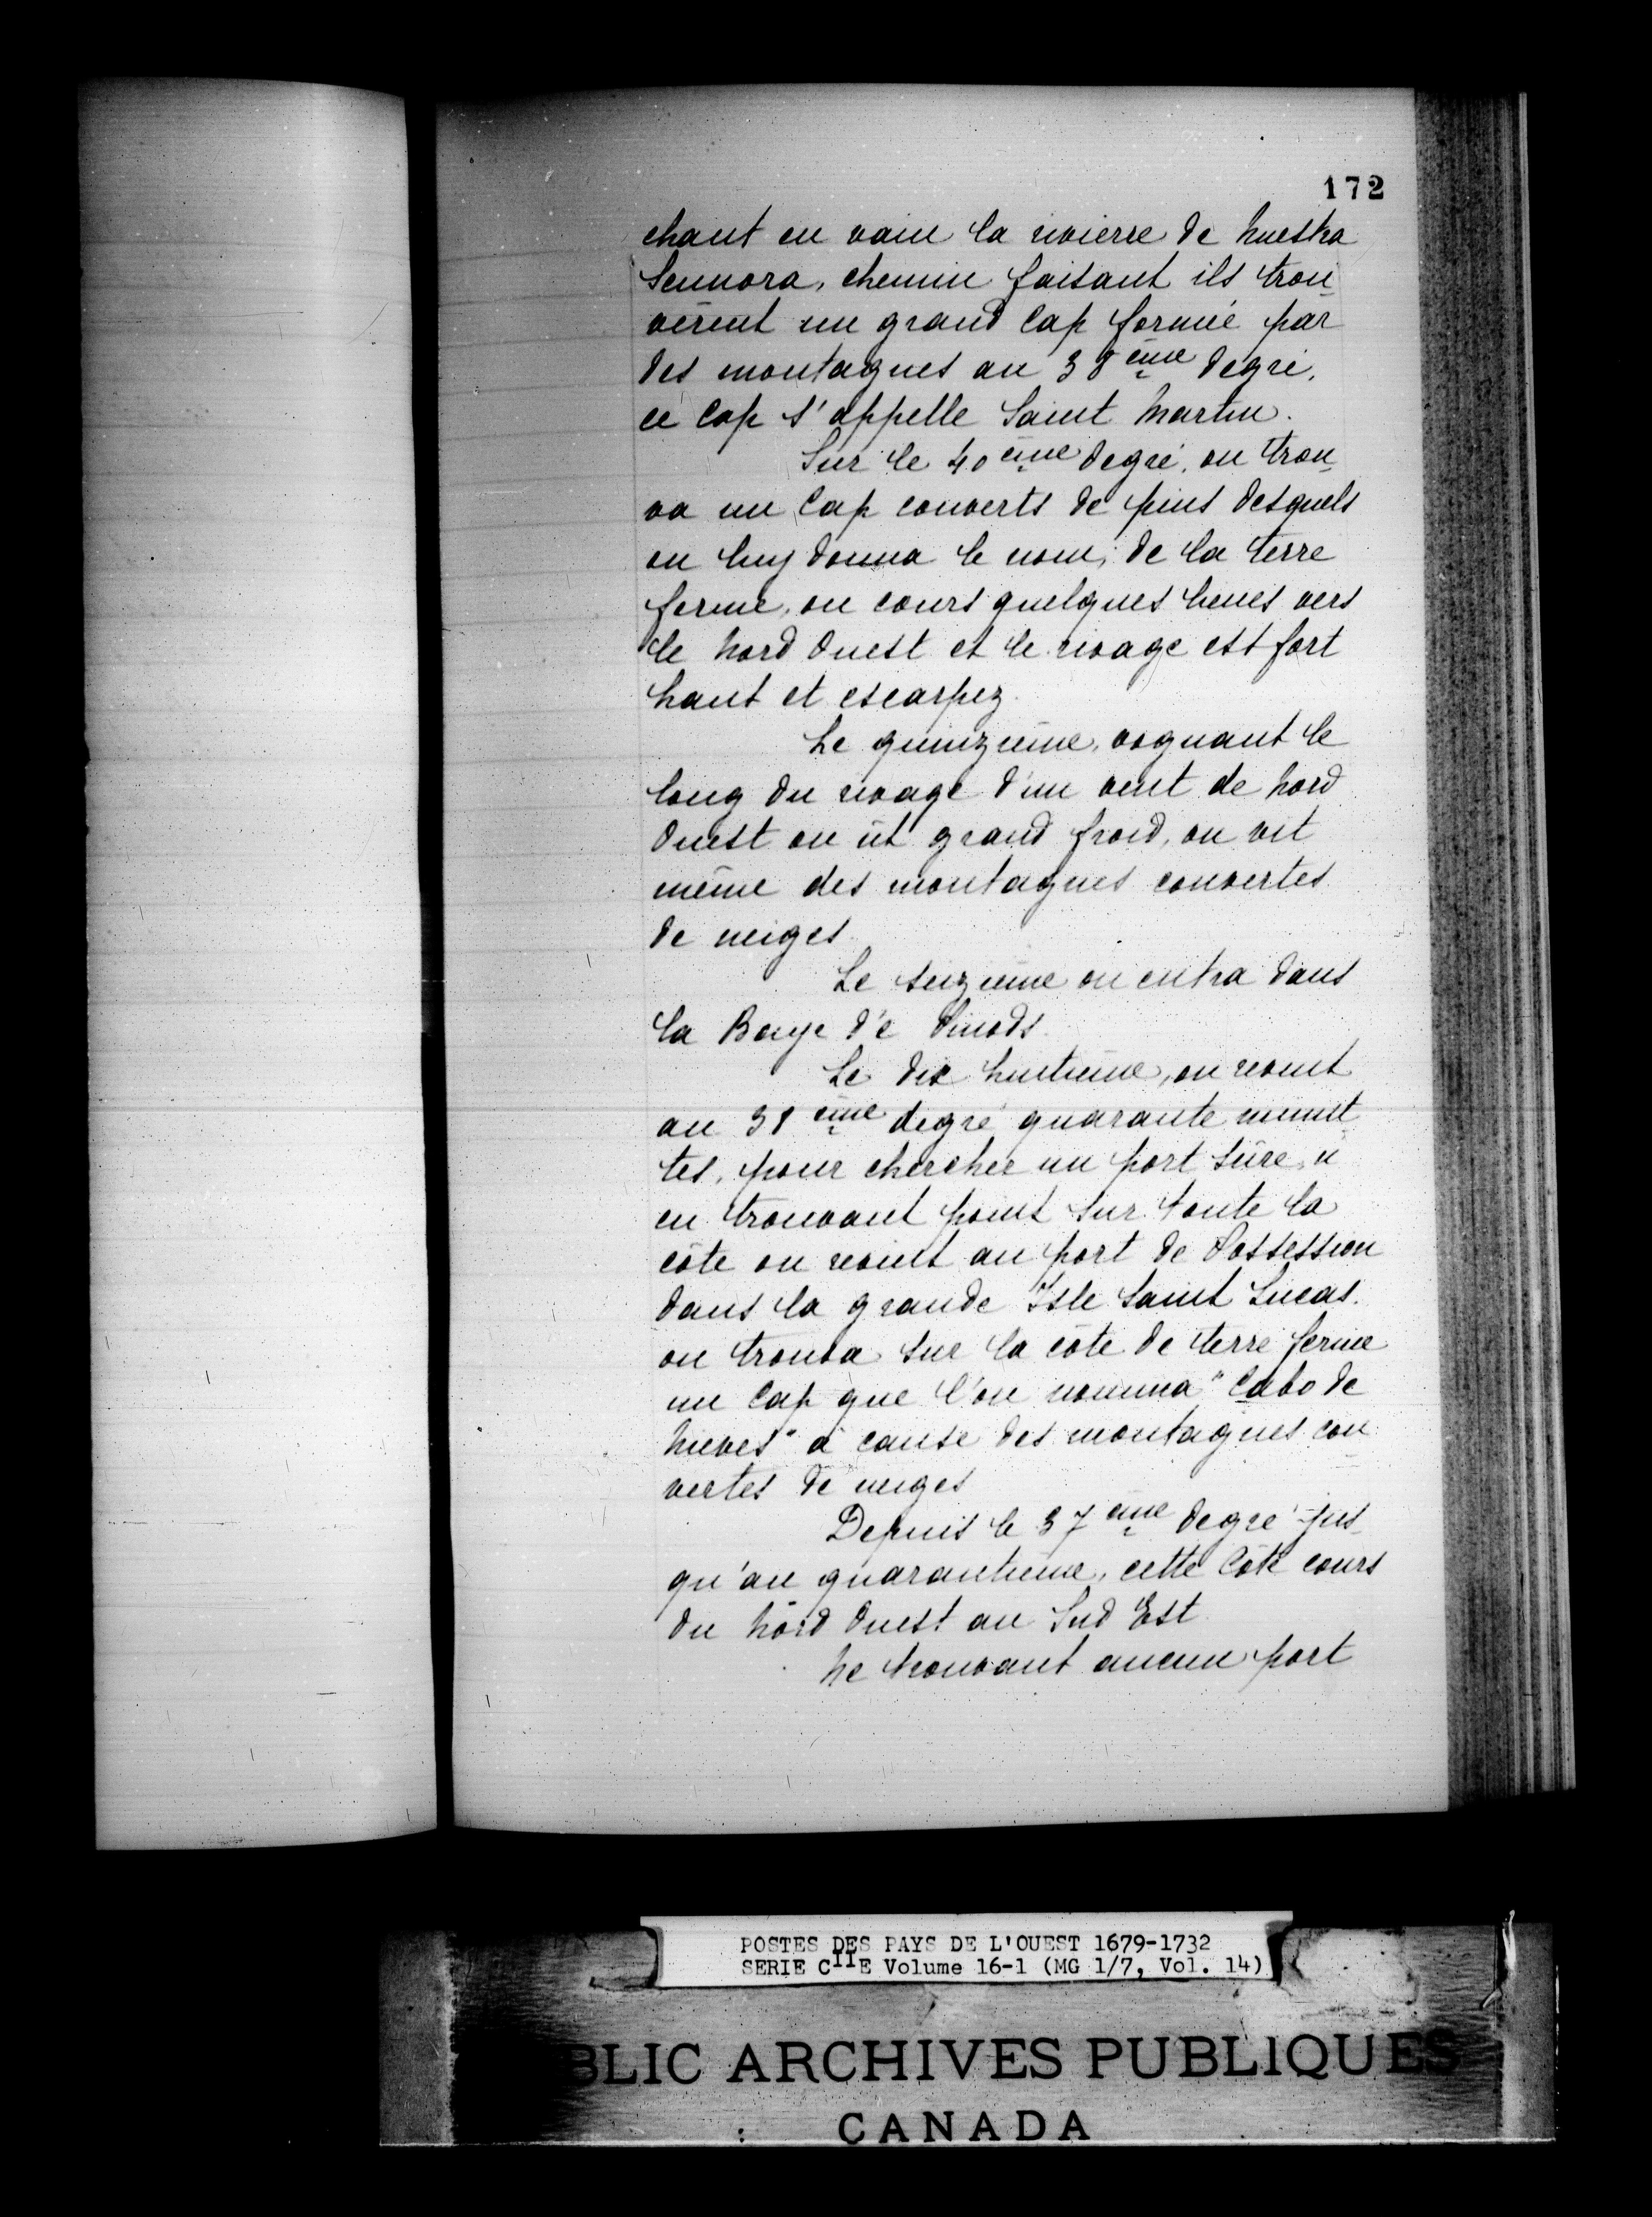 172
chant en vain la rivierre de Nuestra
Sennora, chemin faisant ils trou_
vèrent un grand Cap formé par
des montagnes au 38 ème degré,
ce Cap s'appelle Saint Martin.
Sur le 40 ème degré, on trou_
va un Cap couverts de pins desquels
on luy donna le nom, de la terre
ferme, on cours quelques lieues vers
le Nord Ouest et le rivage est fort
haut et escarpez.
Le quinzième, voguant le
long du rivage d'un vent de Nord
Ouest on ût grand froid, on vit
même des montagnes couvertes
de neiges
Le seizième on entra dans
la Baye d'e Pinods.
Le dix huitième, on revint
au 38 ème degré quarante minut_
tes, pour chercher un port sûre, n'
en trouvant point sur toute la
côte on revint au port de Possession
dans la grande Isle Saint Lucas.
on trouva sur la côte de terre ferme
un Cap que l'on nomma "Cabo de
Nieves" à cause des montagnes cou_
vertes de neiges
Depuis le 37 ème degré jus_
qu'au quarantième, cette Côte cours
du Nord Ouest au Sud Est.
Ne trouvant aucun port
POSTES DES PAYS DE L'OUEST 1679-1732
SERIE CIIE Volume 16-1 (MG 1/7, Vol. 14)
BLIC ARCHIVES PUBLIQUES
CANADA